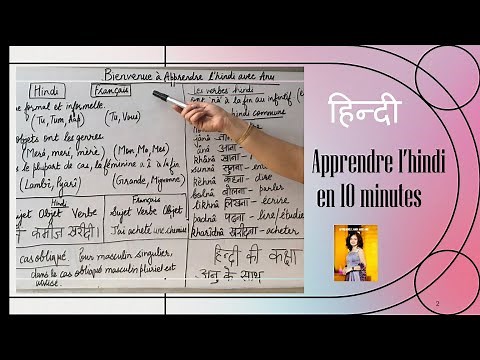 Bienvenue à Apprendre l'hindi avec Anu
Hindi Français
formal et informelle.
(Tu, Tum, Aap) (Tu, Vous)
objets ont les genres
(Merā, merī, mērē) (Mon, Ma, Mes)
le plupart de cas, la féminine à la fin
(Lambī, Pyārī) (Grande, Mignonne)
Hindi Français
Objet Verbe Sujet Verbe Objet
कमीज़ खरीदी। J'ai acheté une
cas oblique. Pour masculin singulier,
dans le cas oblique masculin pluriel est
Les verbes hindi
ont 'nā' à la fin au infinitif
hindi communs
jānā जाना
ānā आना
khānā खाना
sunnā सुनना
kēhnā कहना
bolnā बोलना - parler
likhnā लिखना - écrire
padnā पढ़ना - lire/étudier
kharīdnā खरीदना - acheter
हिन्दी की कक्षा
अनु के साथ
हिन्दी
Apprendre l'hindi
en 10 minutes
2